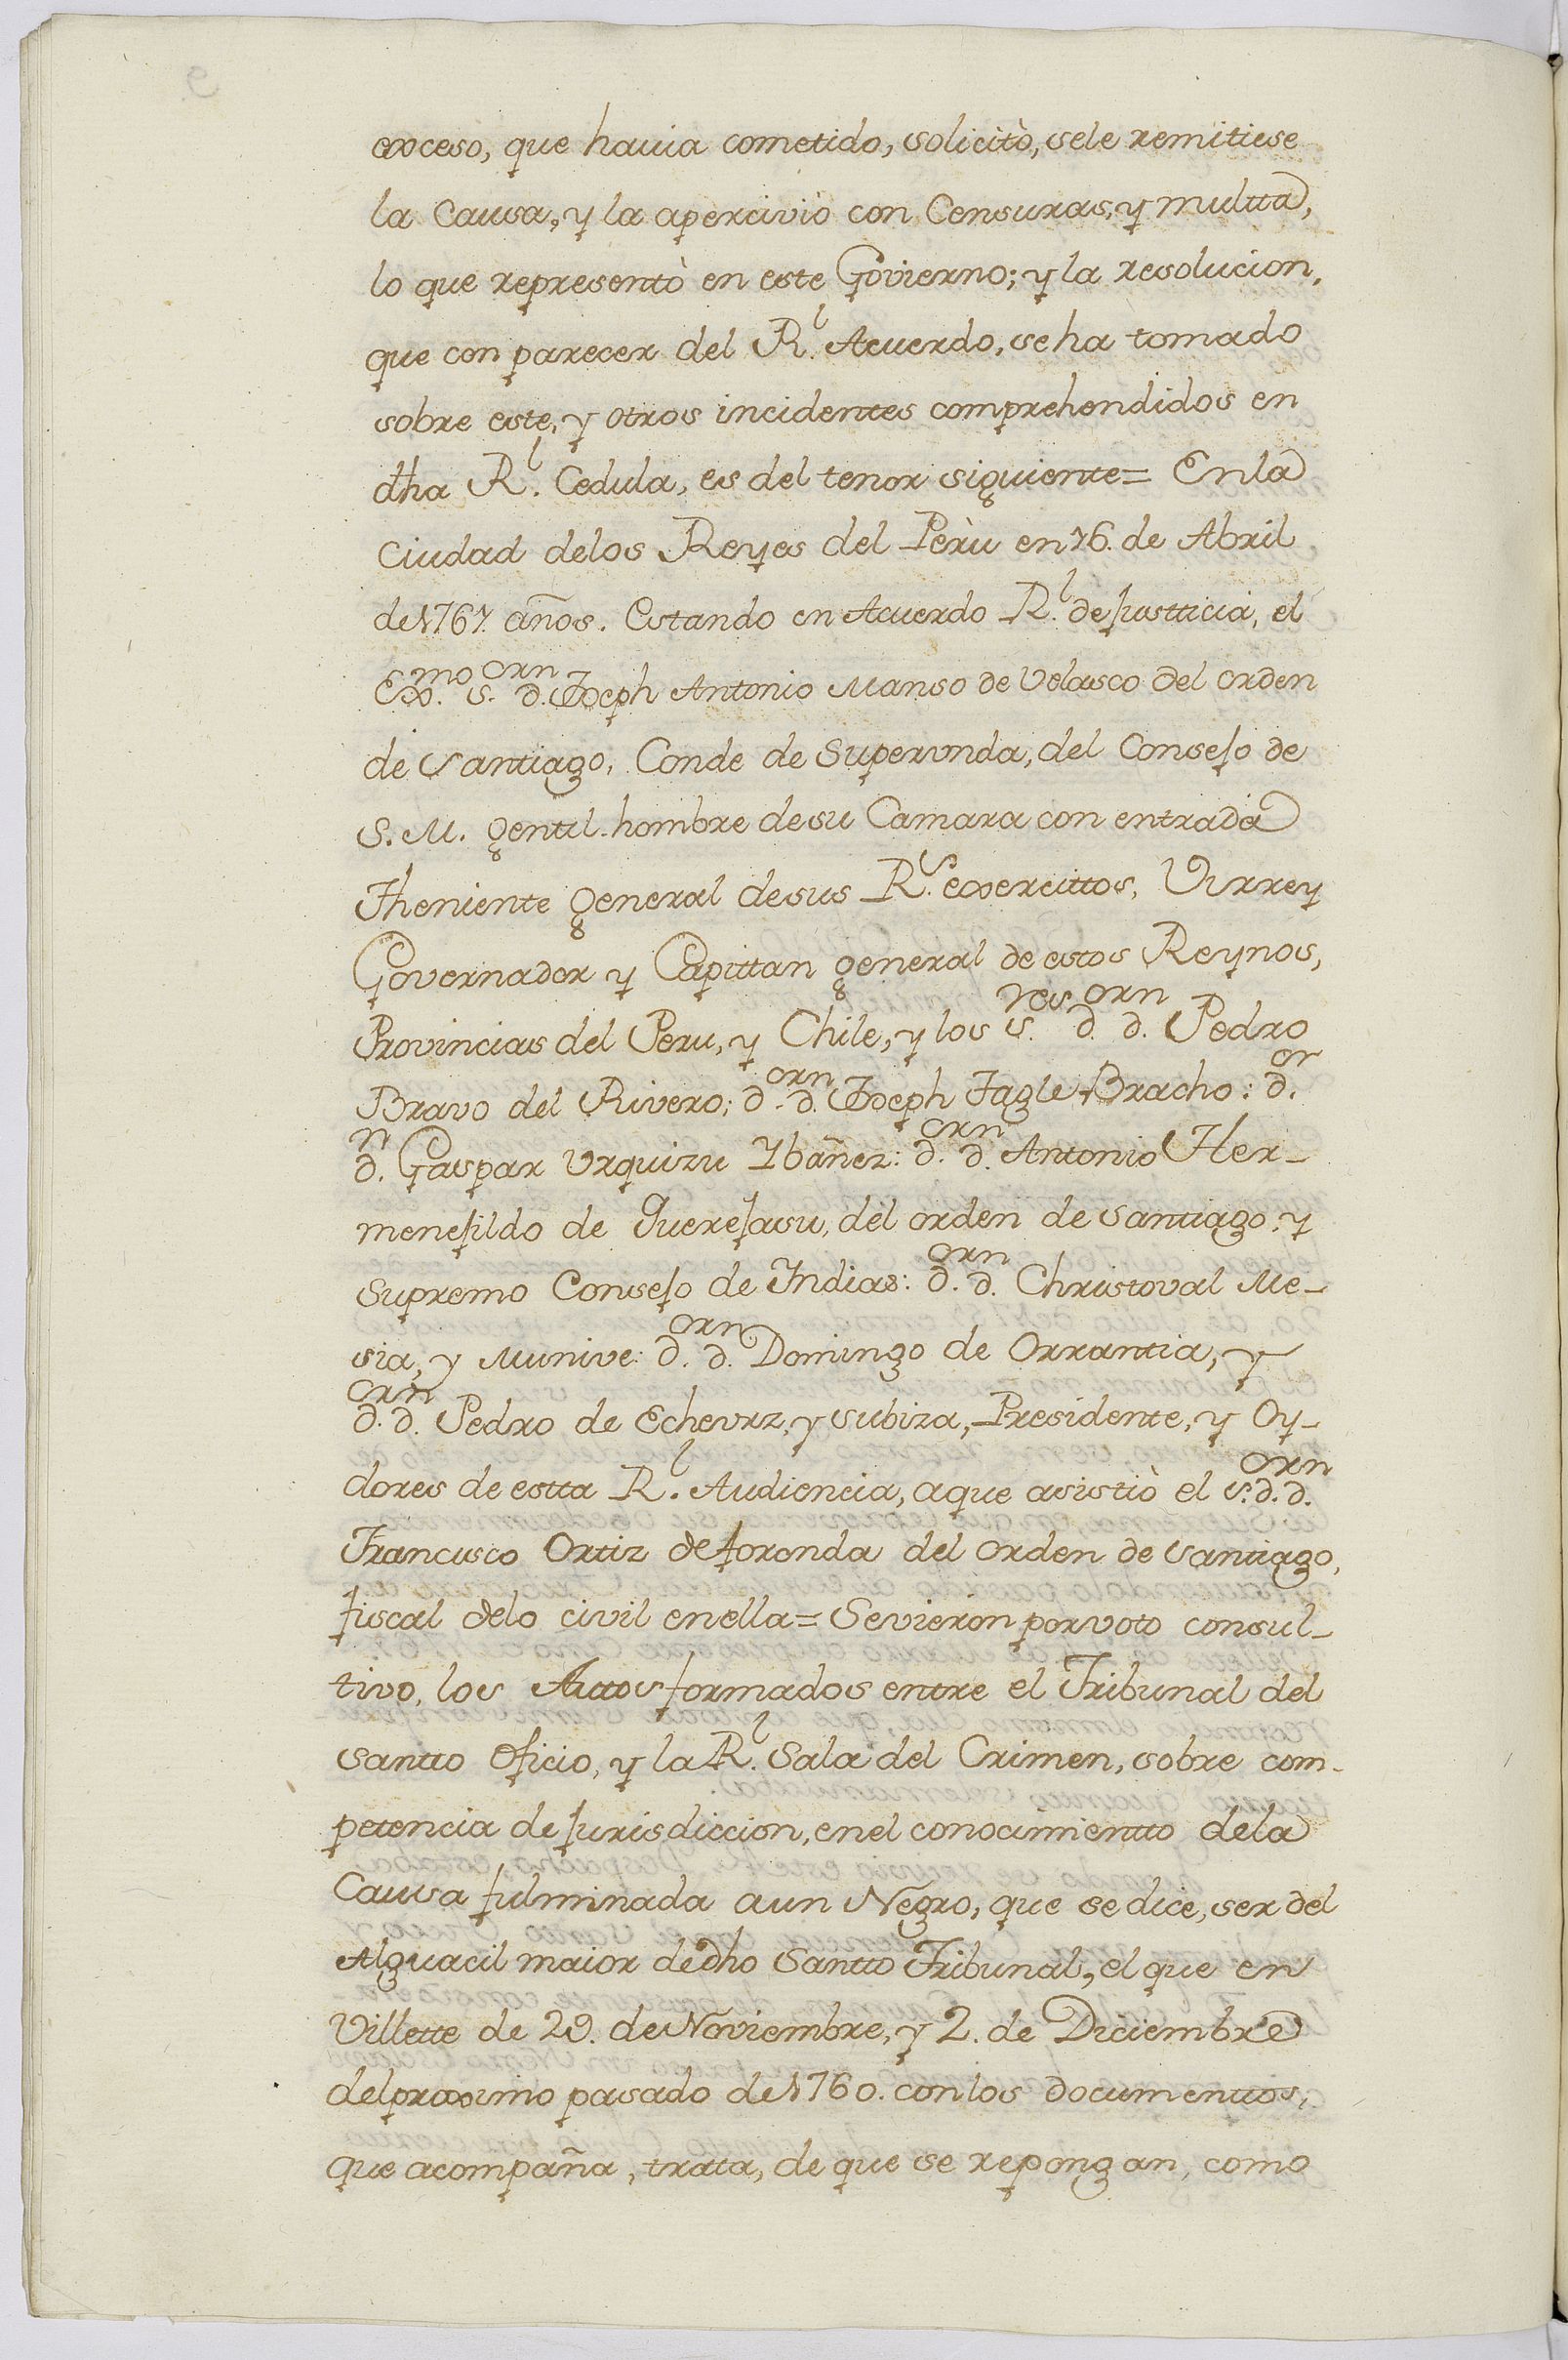 exceso, que havia cometido, solicitò, sele remitiese
la Causa, y la apercivio con Censuras, y multta,
lo que representò en este Govierno; y la resolucion,
que con parecer del R.l Acuerdo, se ha tomado
sobre este, y otros incidentes comprehendidos en
dha R.l Cedula, es del tenor siguiente= En la
Ciudad delos Reyes del Perù en 16. de Abril
de 1761. años. Estando en Acuerdo R.l de Justticia, el
Ex.mo S.or d.n Joseph Antonio Manso de Velasco del orden
de Santiago, Conde de Superunda, del Consejo de
S. M. gentil-hombre desu Camara con entrada
Theniente general desus R.s exercittos, Virrey
Governador y Capittan general de estos Reynos,
Provincias del Peru, y Chile, y los S.res d.or d.n Pedro
Bravo del Rivero; d.or d.n Joseph Tagle Bracho: d.or
d.n Gaspar Vrquizu Ybañez: d.or d.n Antonio Her-
menejildo de Querejasu, del orden de Santiago, y
Supremo Consejo de Indias: d.or d.n Christoval Me-
sia, y Munive: d.or d.n Domingo de Orrantia, y
d.or d.n Pedro de Echevrz, y subiza, Presidente, y Oy-
dores de estta R.l Audiencia, aque asistiò el S.or d.or d.n
Francisco Ortiz de foronda del orden de Santiago,
fiscal delo civil en ella= Se vieron por voto consul-
tivo, los Auttos formados entre el Tribunal del
Santto Oficio, y la R.l Sala del Crimen, sobre com-
petencia de Jurisdiccion, en el conocimientto dela
Causa fulminada aun Negro, que se dice, ser del
Alguacil maior de dho Santto Tribunal, el que en
Villette de 29. de Noviembre, y 2. de Diciembre
del proximo pasado de 1760. con los documenttos,
que acompaña, trata, de que se repongan, como